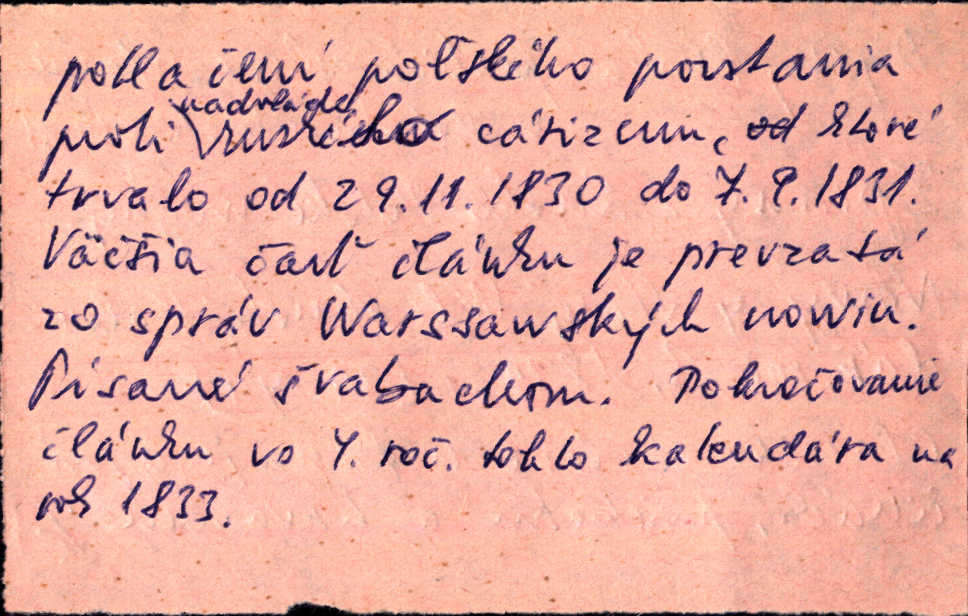 potlačení poľského povstania
nadvláde
proti ruského cárizmu, od ktoré
trvalo od 29.11.1830 do 7.9.1831.
Väčšia časť článku je prevzatá
zo správ Warssawských nowin.
Písané švabachom. Pokračovanie
článku vo 4. roč. tohto kalendára na
rok 1833.